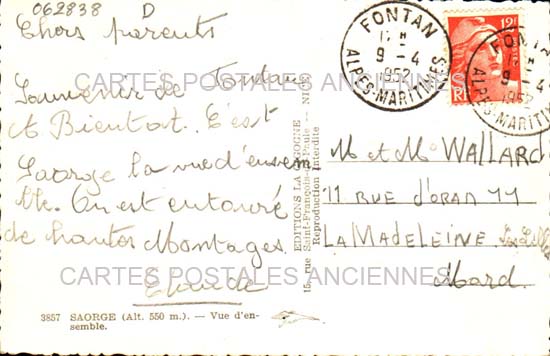 062838 D
Chers parents
Souvenir de Fontan
A Bientot. C'est
Saorge la vue d'ensem
ble. On est entouré
de hautes Montages.
Claude
3857 SAORGE (Alt. 550 m.). — Vue d'en-
semble.
EDITIONS LA CIGOGNE
15, rue Saint-François-de-Paule — NICE
Reproduction Interdite
FONTAN
9 - 4
1952
ALPES-MARITIMES
12F
RF
FONTAN
9 - 4
1952
ALPES-MARITIMES
M et Me WALLARD
11 RUE d'ORAN 11
LA MADELEINE Les Lille
Nord.
CARTES POSTALES ANCIENNES
CARTES POSTALES ANCIENNES